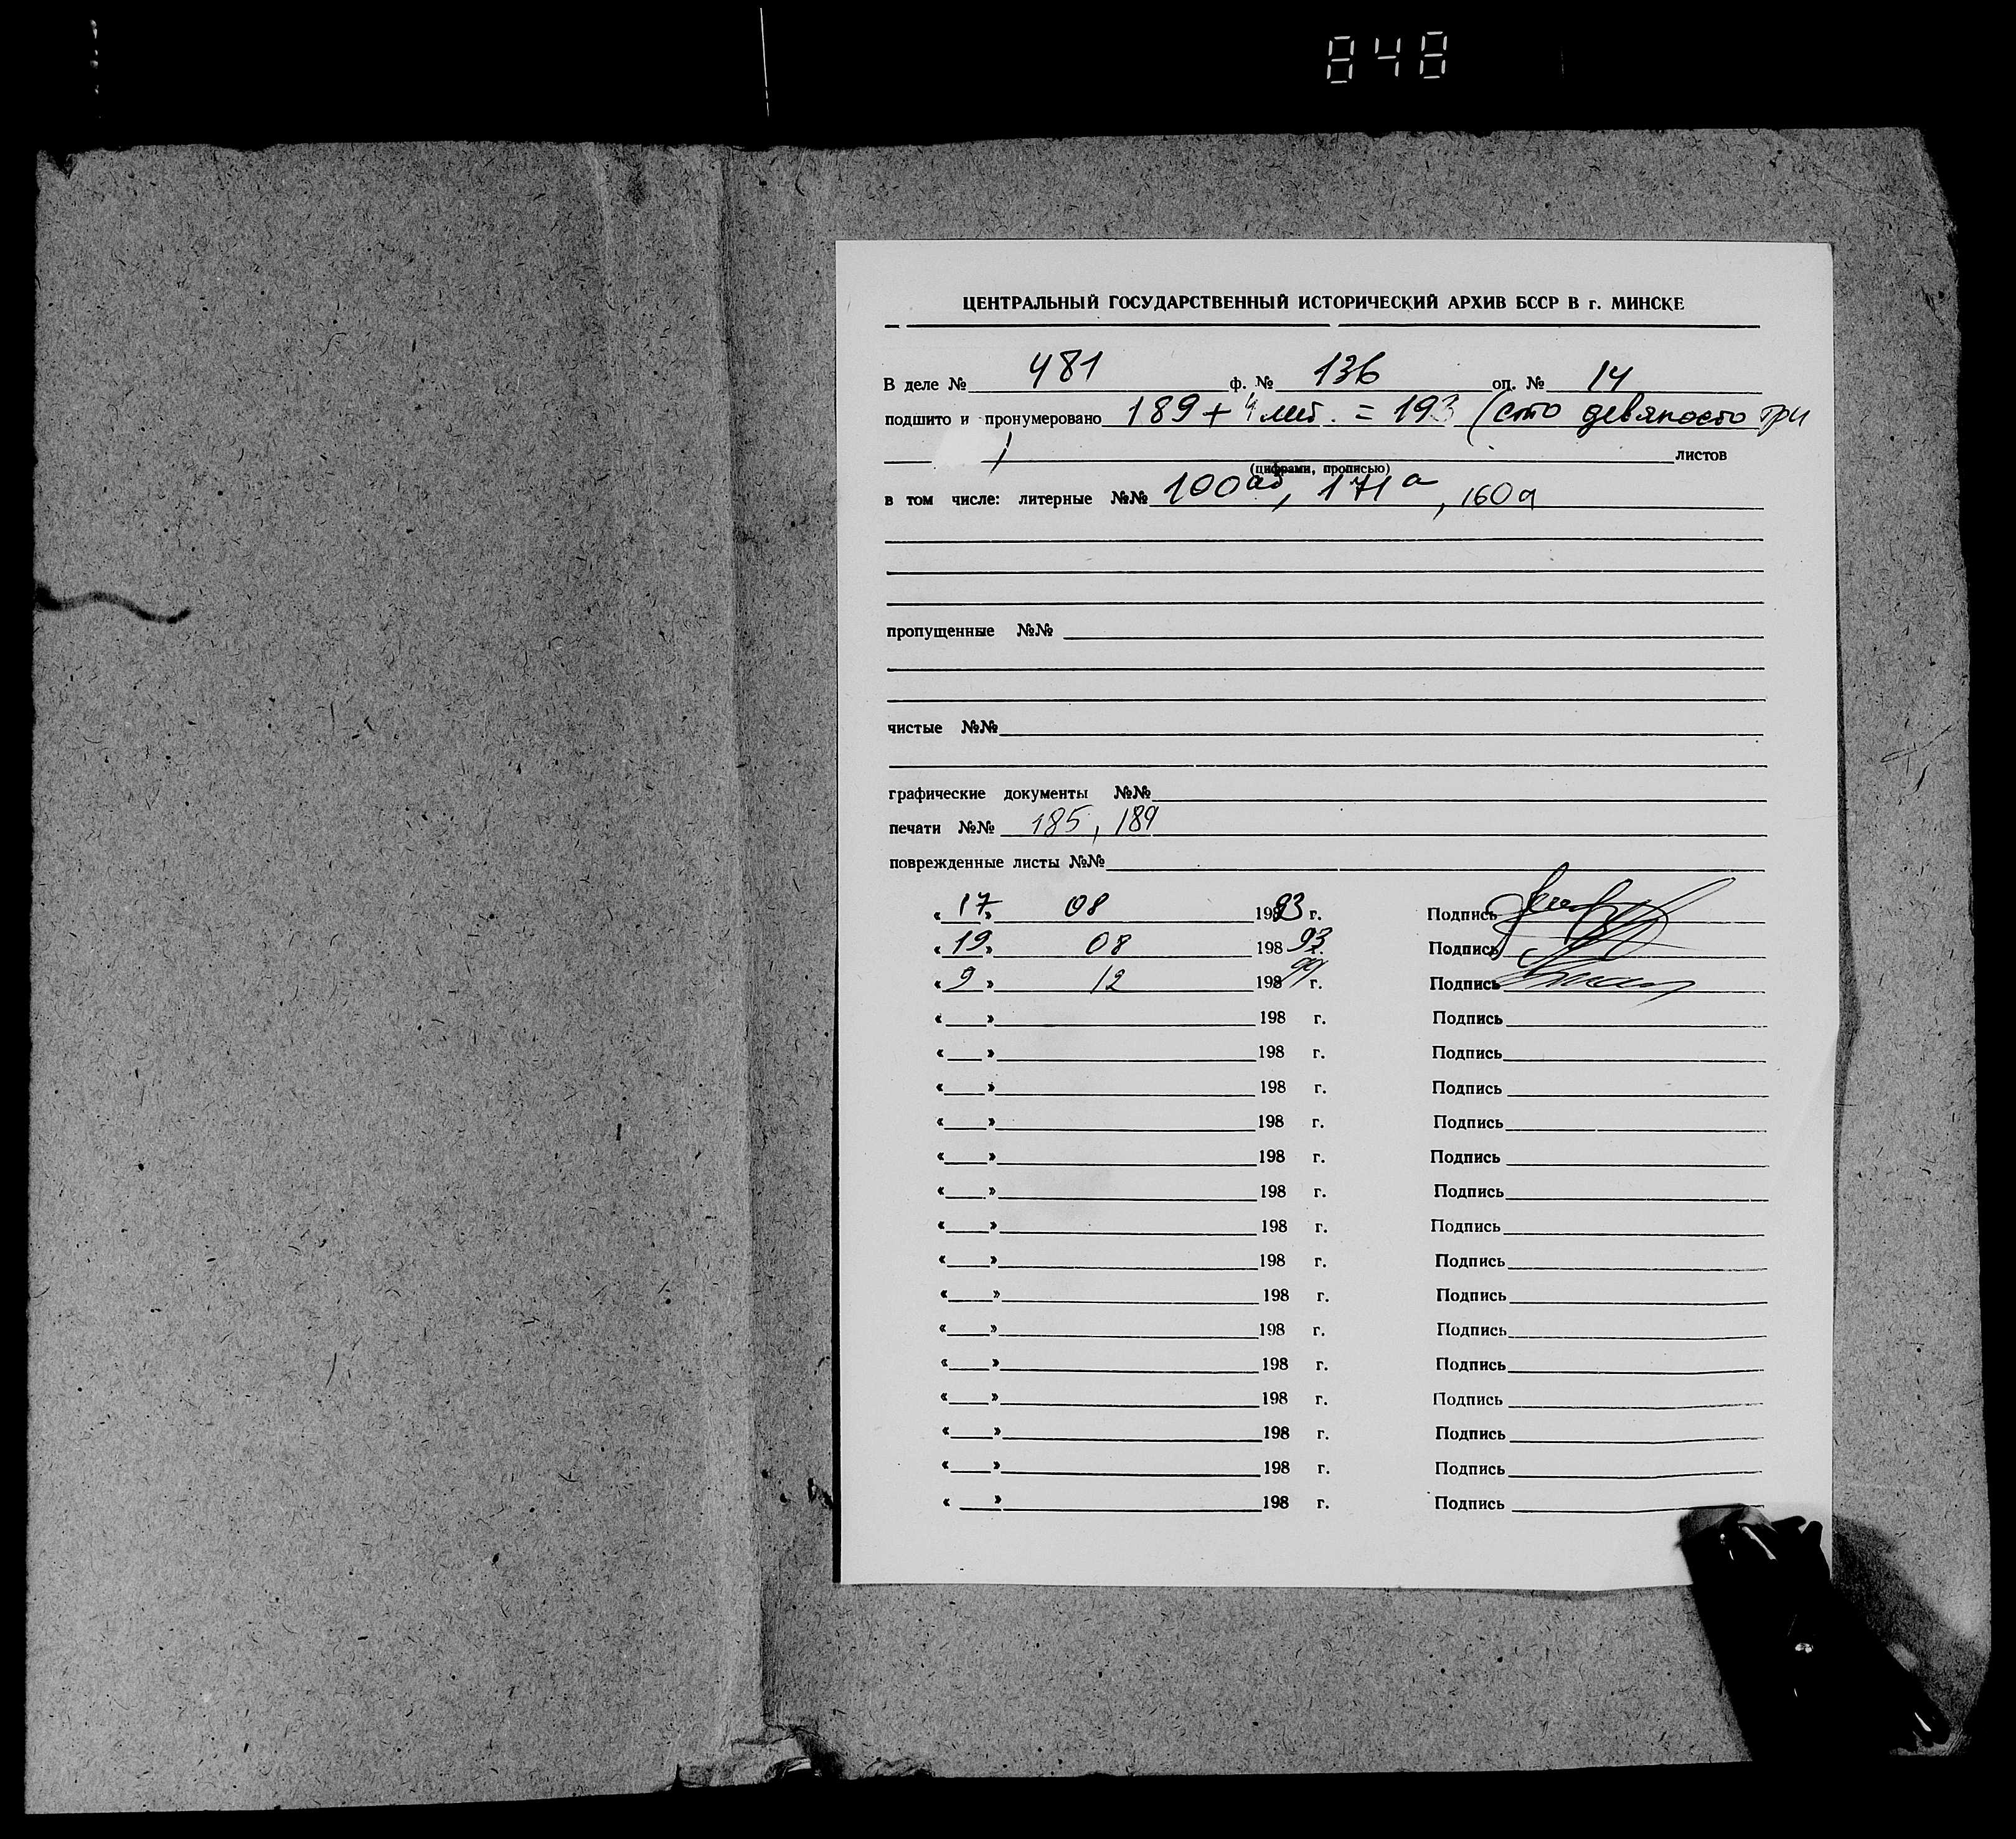 848
ЦЕНТРАЛЬНЫЙ ГОСУДАРСТВЕННЫЙ ИСТОРИЧЕСКИЙ АРХИВ БССР В г. МИНСКЕ
В деле № 481 ф. № 136 оп. № 14
подшито и пронумеровано 189 + 4 лит. = 193 (сто девяносто три
) листов
(цифрами, прописью)
в том числе: литерные №№ 100аб, 171а, 160а
пропущенные №№
чистые №№
графические документы №№
печати №№ 185, 189
поврежденные листы №№
« 17 » 08 1993 г. Подпись
« 19 » 08 198 93 г. Подпись
« 9 » 12 198 99 г. Подпись
« » 198 г. Подпись
« » 198 г. Подпись
« » 198 г. Подпись
« » 198 г. Подпись
« » 198 г. Подпись
« » 198 г. Подпись
« » 198 г. Подпись
« » 198 г. Подпись
« » 198 г. Подпись
« » 198 г. Подпись
« » 198 г. Подпись
« » 198 г. Подпись
« » 198 г. Подпись
« » 198 г. Подпись
« » 198 г. Подпись